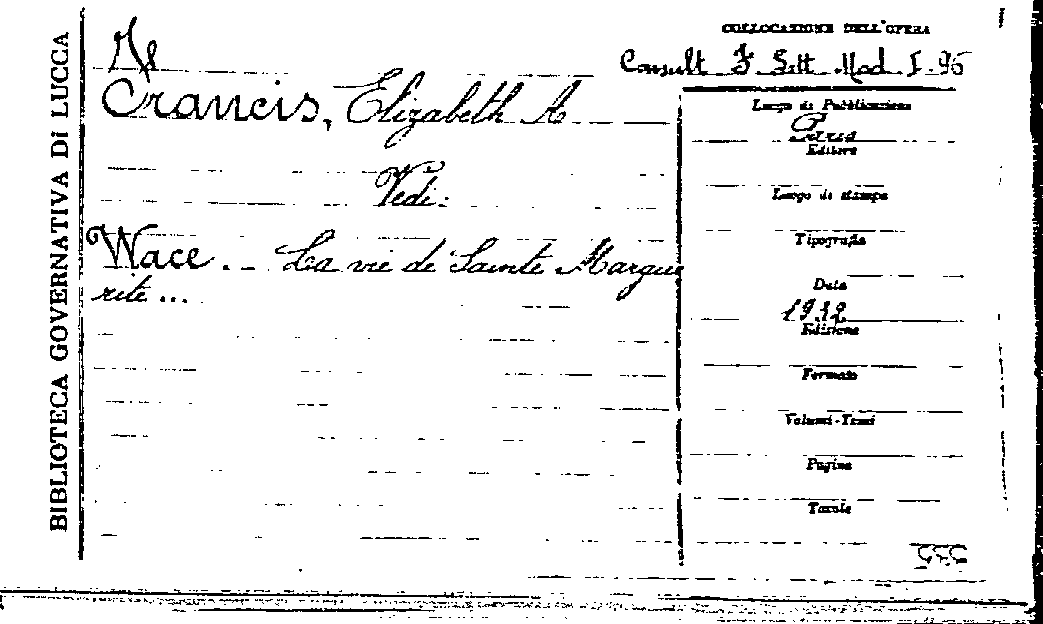 BIBLIOTECA GOVERNATIVA DI LUCCA
COLLOCAZIONE DELL'OPERA
Consult F Sett Mod I-95
Francis, Elizabeth A
Vedi:
Wace... La vie de Sainte Margue
rite...
Luogo di Pubblicazione
Paris
Editore
Luogo di stampa
Tipografia
Data
1932
Edizione
Formato
Volumi-Tomi
Pagine
Tavole